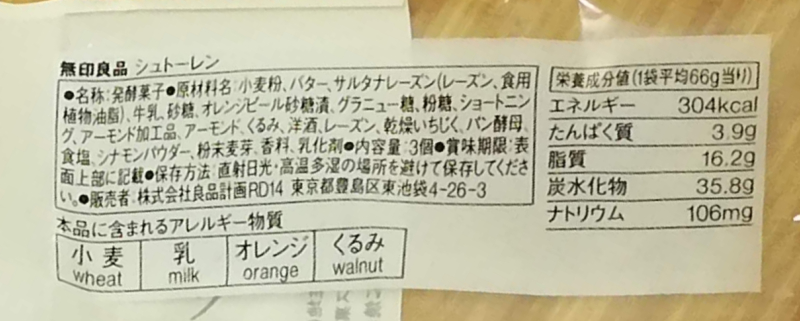 無印良品 シュトーレン
●名称:発酵菓子●原材料名:小麦粉、バター、サルタナレーズン(レーズン、食用
植物油脂)、牛乳、砂糖、オレンジピール砂糖漬、グラニュー糖、粉糖、ショートニン
グ、アーモンド加工品、アーモンド、くるみ、洋酒、レーズン、乾燥いちじく、パン酵母、
食塩、シナモンパウダー、粉末麦芽、香料、乳化剤●内容量:3個●賞味期限:表
面上部に記載●保存方法:直射日光・高温多湿の場所を避けて保存してくださ
い。●販売者:株式会社良品計画RD14 東京都豊島区東池袋4-26-3
本品に含まれるアレルギー物質
小麦 乳 オレンジ くるみ
wheat milk orange walnut
栄養成分値(1袋平均66g当り)
エネルギー 304kcal
たんぱく質 3.9g
脂質 16.2g
炭水化物 35.8g
ナトリウム 106mg